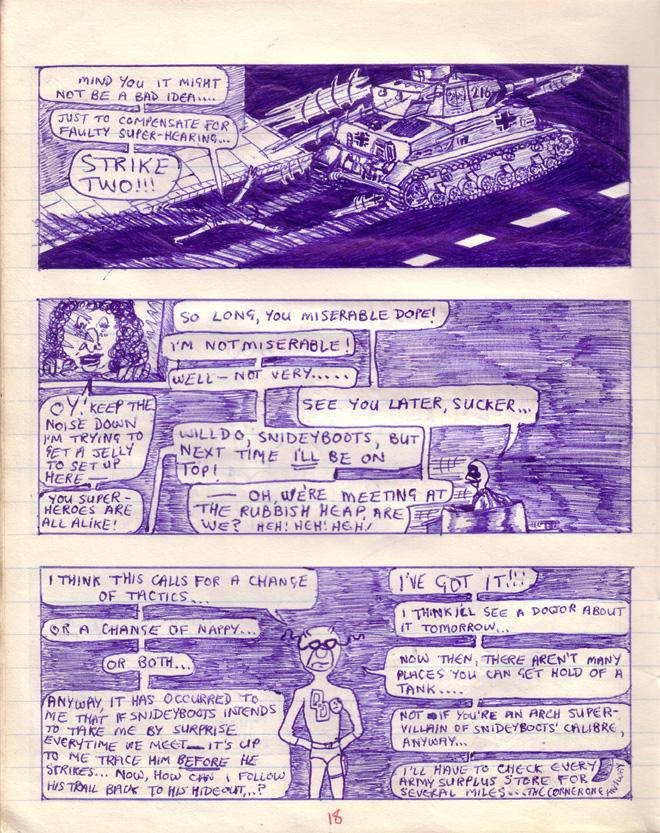 MIND YOU IT MIGHT
NOT BE A BAD IDEA....
JUST TO COMPENSATE FOR
FAULTY SUPER-HEARING...
STRIKE
TWO!!!
216
SO LONG, YOU MISERABLE DOPE!
I'M NOT MISERABLE!
WELL - NOT VERY.....
SEE YOU LATER, SUCKER...
OY! KEEP THE
NOISE DOWN
I'M TRYING TO
GET A JELLY
TO SET UP
HERE
YOU SUPER-
HEROES ARE
ALL ALIKE!
WILL DO, SNIDEYBOOTS, BUT
NEXT TIME I'LL BE ON
TOP!
— OH, WE'RE MEETING AT
THE RUBBISH HEAP, ARE
WE? HEH! HEH! HEH!
I THINK THIS CALLS FOR A CHANGE
OF TACTICS...
OR A CHANGE OF NAPPY...
OR BOTH...
ANYWAY, IT HAS OCCURRED TO
ME THAT IF SNIDEYBOOTS INTENDS
TO TAKE ME BY SURPRISE
EVERYTIME WE MEET — IT'S UP
TO ME TRACE HIM BEFORE HE
STRIKES... NOW, HOW CAN I FOLLOW
HIS TRAIL BACK TO HIS HIDEOUT,..?
DD
I'VE GOT IT!!!
I THINK I'LL SEE A DOCTOR ABOUT
IT TOMORROW...
NOW THEN, THERE AREN'T MANY
PLACES YOU CAN GET HOLD OF A
TANK....
NOT IF YOU'RE AN ARCH SUPER-
VILLAIN OF SNIDEYBOOTS' CALIBRE,
ANYWAY...
I'LL HAVE TO CHECK EVERY
ARMY SURPLUS STORE FOR
SEVERAL MILES... THE CORNER ONE ANYWAY
18